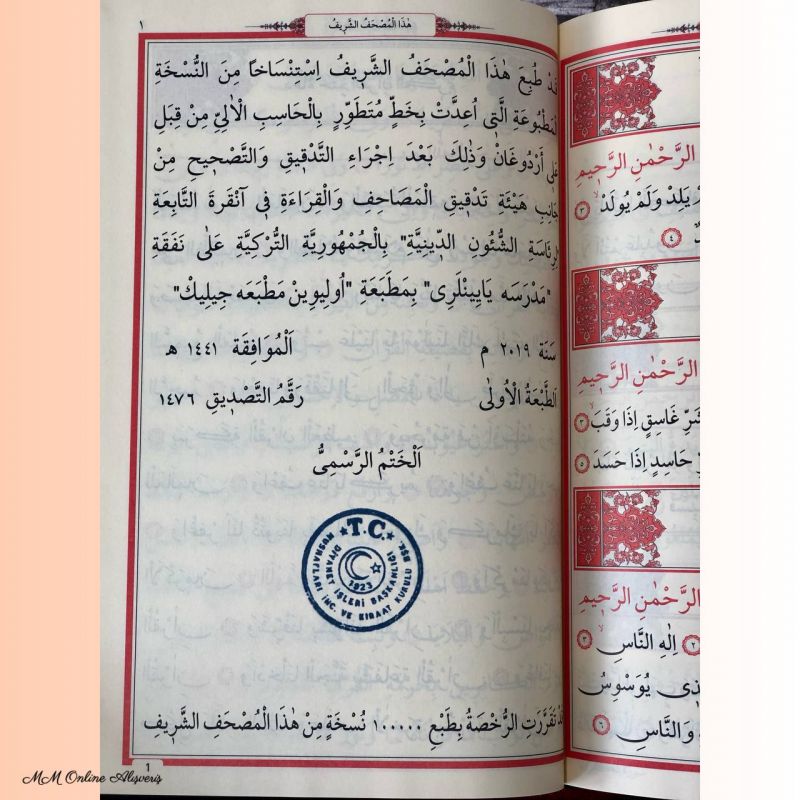 ١
هٰذَا الْمُصْحَفُ الشَّرِيفُ
قَدْ طُبِعَ هٰذَا الْمُصْحَفُ الشَّرِيفُ اِسْتِنْسَاخًا مِنَ النُّسْخَةِ
الْمَطْبُوعَةِ الَّتِى اُعِدَّتْ بِخَطٍّ مُتَطَوِّرٍ بِالْحَاسِبِ الْاٰلِىِّ مِنْ قِبَلِ
عَلِى أَرْدُوغَانْ وَذٰلِكَ بَعْدَ اِجْرَاءِ التَّدْقِيقِ وَالتَّصْحِيحِ مِنْ
جَانِبِ هَيْئَةِ تَدْقِيقِ الْمَصَاحِفِ وَالْقِرَاءَةِ فِى آنْقَرَةَ التَّابِعَةِ
لِرِئَاسَةِ الشُّئُونِ الدِّينِيَّةِ" بِالْجُمْهُورِيَّةِ التُّرْكِيَّةِ عَلٰى نَفَقَةِ
"مَدْرَسَه يَايِينْلَرِى" بِمَطْبَعَةِ "اُولِيوِينْ مَطْبَعَه جِيلِيك"
سَنَةَ ٢٠١٩ م اَلْمُوَافِقَةَ ١٤٤١ هـ
اَلطَّبْعَةُ الْاُولٰى رَقَمُ التَّصْدِيقِ ١٤٧٦
اَلْخَتْمُ الرَّسْمِىُّ
T.C.
DİYANET İŞLERİ BAŞKANLIĞI
MUSHAFLARI İNC. VE KIRAAT KURULU BŞK.
1923
قَدْ تَقَرَّرَتِ الرُّخْصَةُ بِطَبْعِ ١٠٠٠٠٠ نُسْخَةٍ مِنْ هٰذَا الْمُصْحَفِ الشَّرِيفِ
1
الرَّحْمٰنِ الرَّحِيمِ
يَلِدْ وَلَمْ يُولَدْ ٣
٤
الرَّحْمٰنِ الرَّحِيمِ
شَرِّ غَاسِقٍ اِذَا وَقَبَ ٣
حَاسِدٍ اِذَا حَسَدَ ٥
الرَّحْمٰنِ الرَّحِيمِ
٢ اِلٰهِ النَّاسِ ٣
يُوَسْوِسُ
وَالنَّاسِ ٦
MM Online Alışveriş